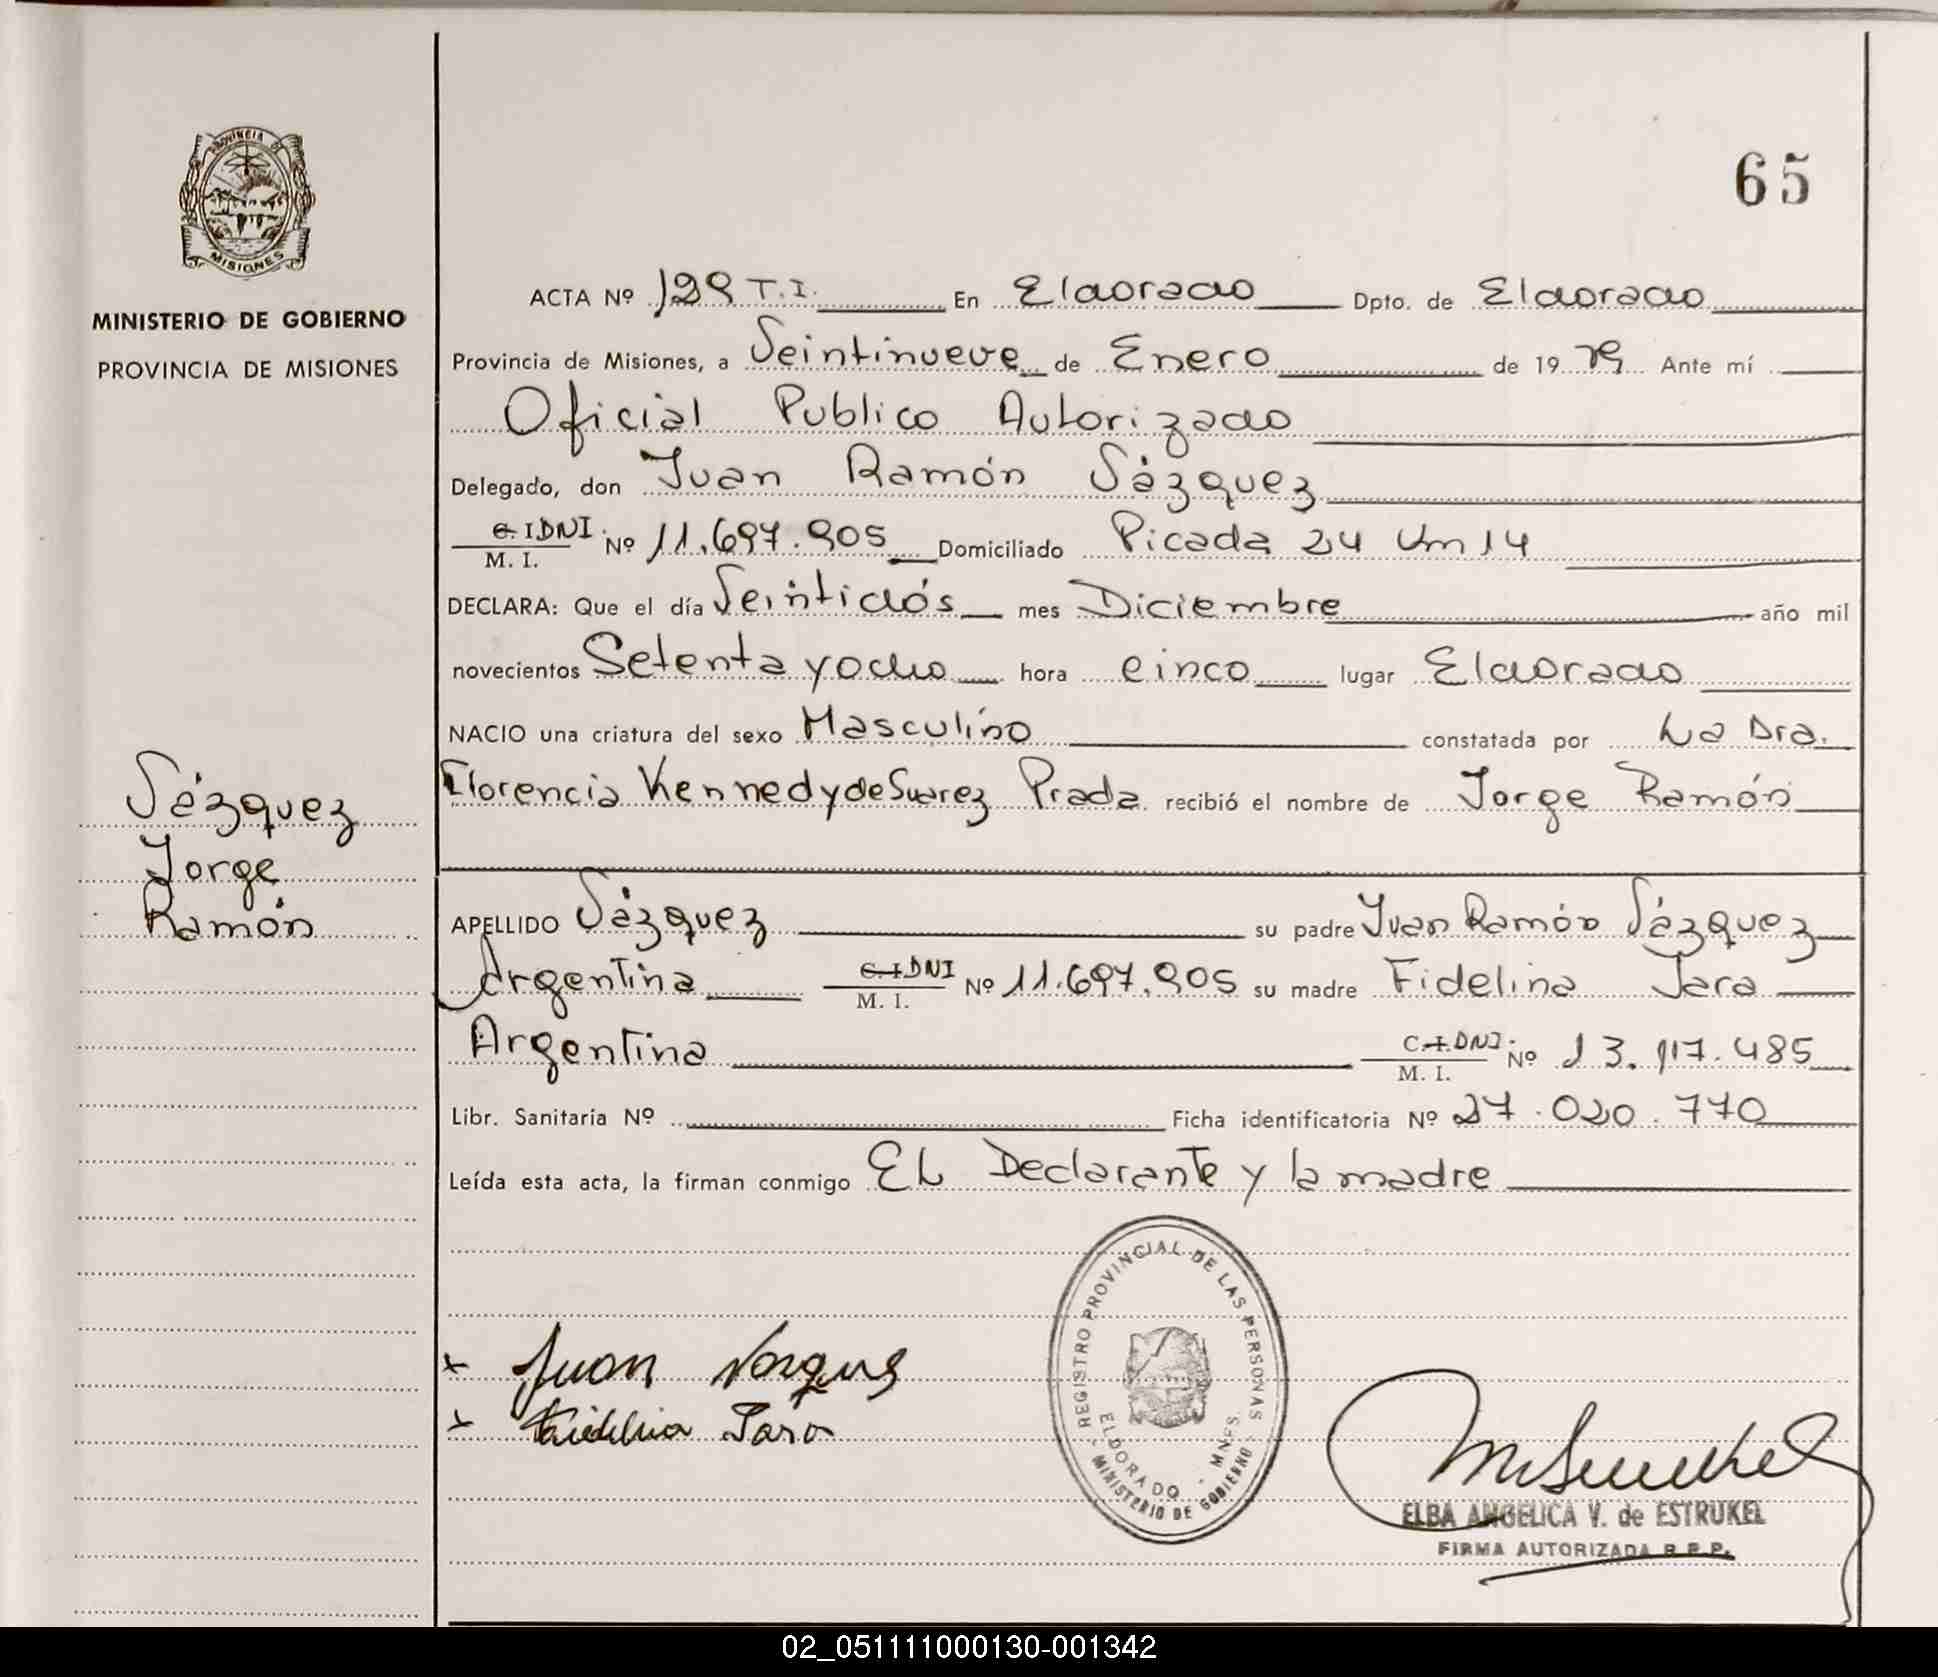 PROVINCIA DE
MISIONES
MINISTERIO DE GOBIERNO
PROVINCIA DE MISIONES
65
ACTA Nº 129 T.I. En Eldorado Dpto. de Eldorado
Provincia de Misiones, a Veintinueve de Enero de 19 79 Ante mí
Oficial Publico Autorizado
Delegado, don Juan Ramón Vázquez
C. I DNI Nº 11.697.905 Domiciliado Picada 24 Km 14
M. I.
DECLARA: Que el día Veintidós mes Diciembre año mil
novecientos Setenta y ocho hora cinco lugar Eldorado
NACIO una criatura del sexo Masculino constatada por La Dra.
Florencia Kennedy de Suarez Prada recibió el nombre de Jorge Ramón
Vázquez
Jorge
Ramón
APELLIDO Vázquez su padre Juan Ramón Vázquez
Argentina C. I DNI Nº 11.697.905 su madre Fidelina Jara
M. I.
Argentina C. I. DNI Nº 13.117.485
M. I.
Libr. Sanitaria Nº Ficha identificatoria Nº 27.020.770
Leída esta acta, la firman conmigo EL Declarante y la madre
REGISTRO PROVINCIAL DE LAS PERSONAS
ELDORADO - MNES.
- MINISTERIO DE GOBIERNO -
x Juan Vazquez
x Fidelina Jara
ELBA ANGELICA V. de ESTRUKEL
FIRMA AUTORIZADA R.P.P.
02_051111000130-001342